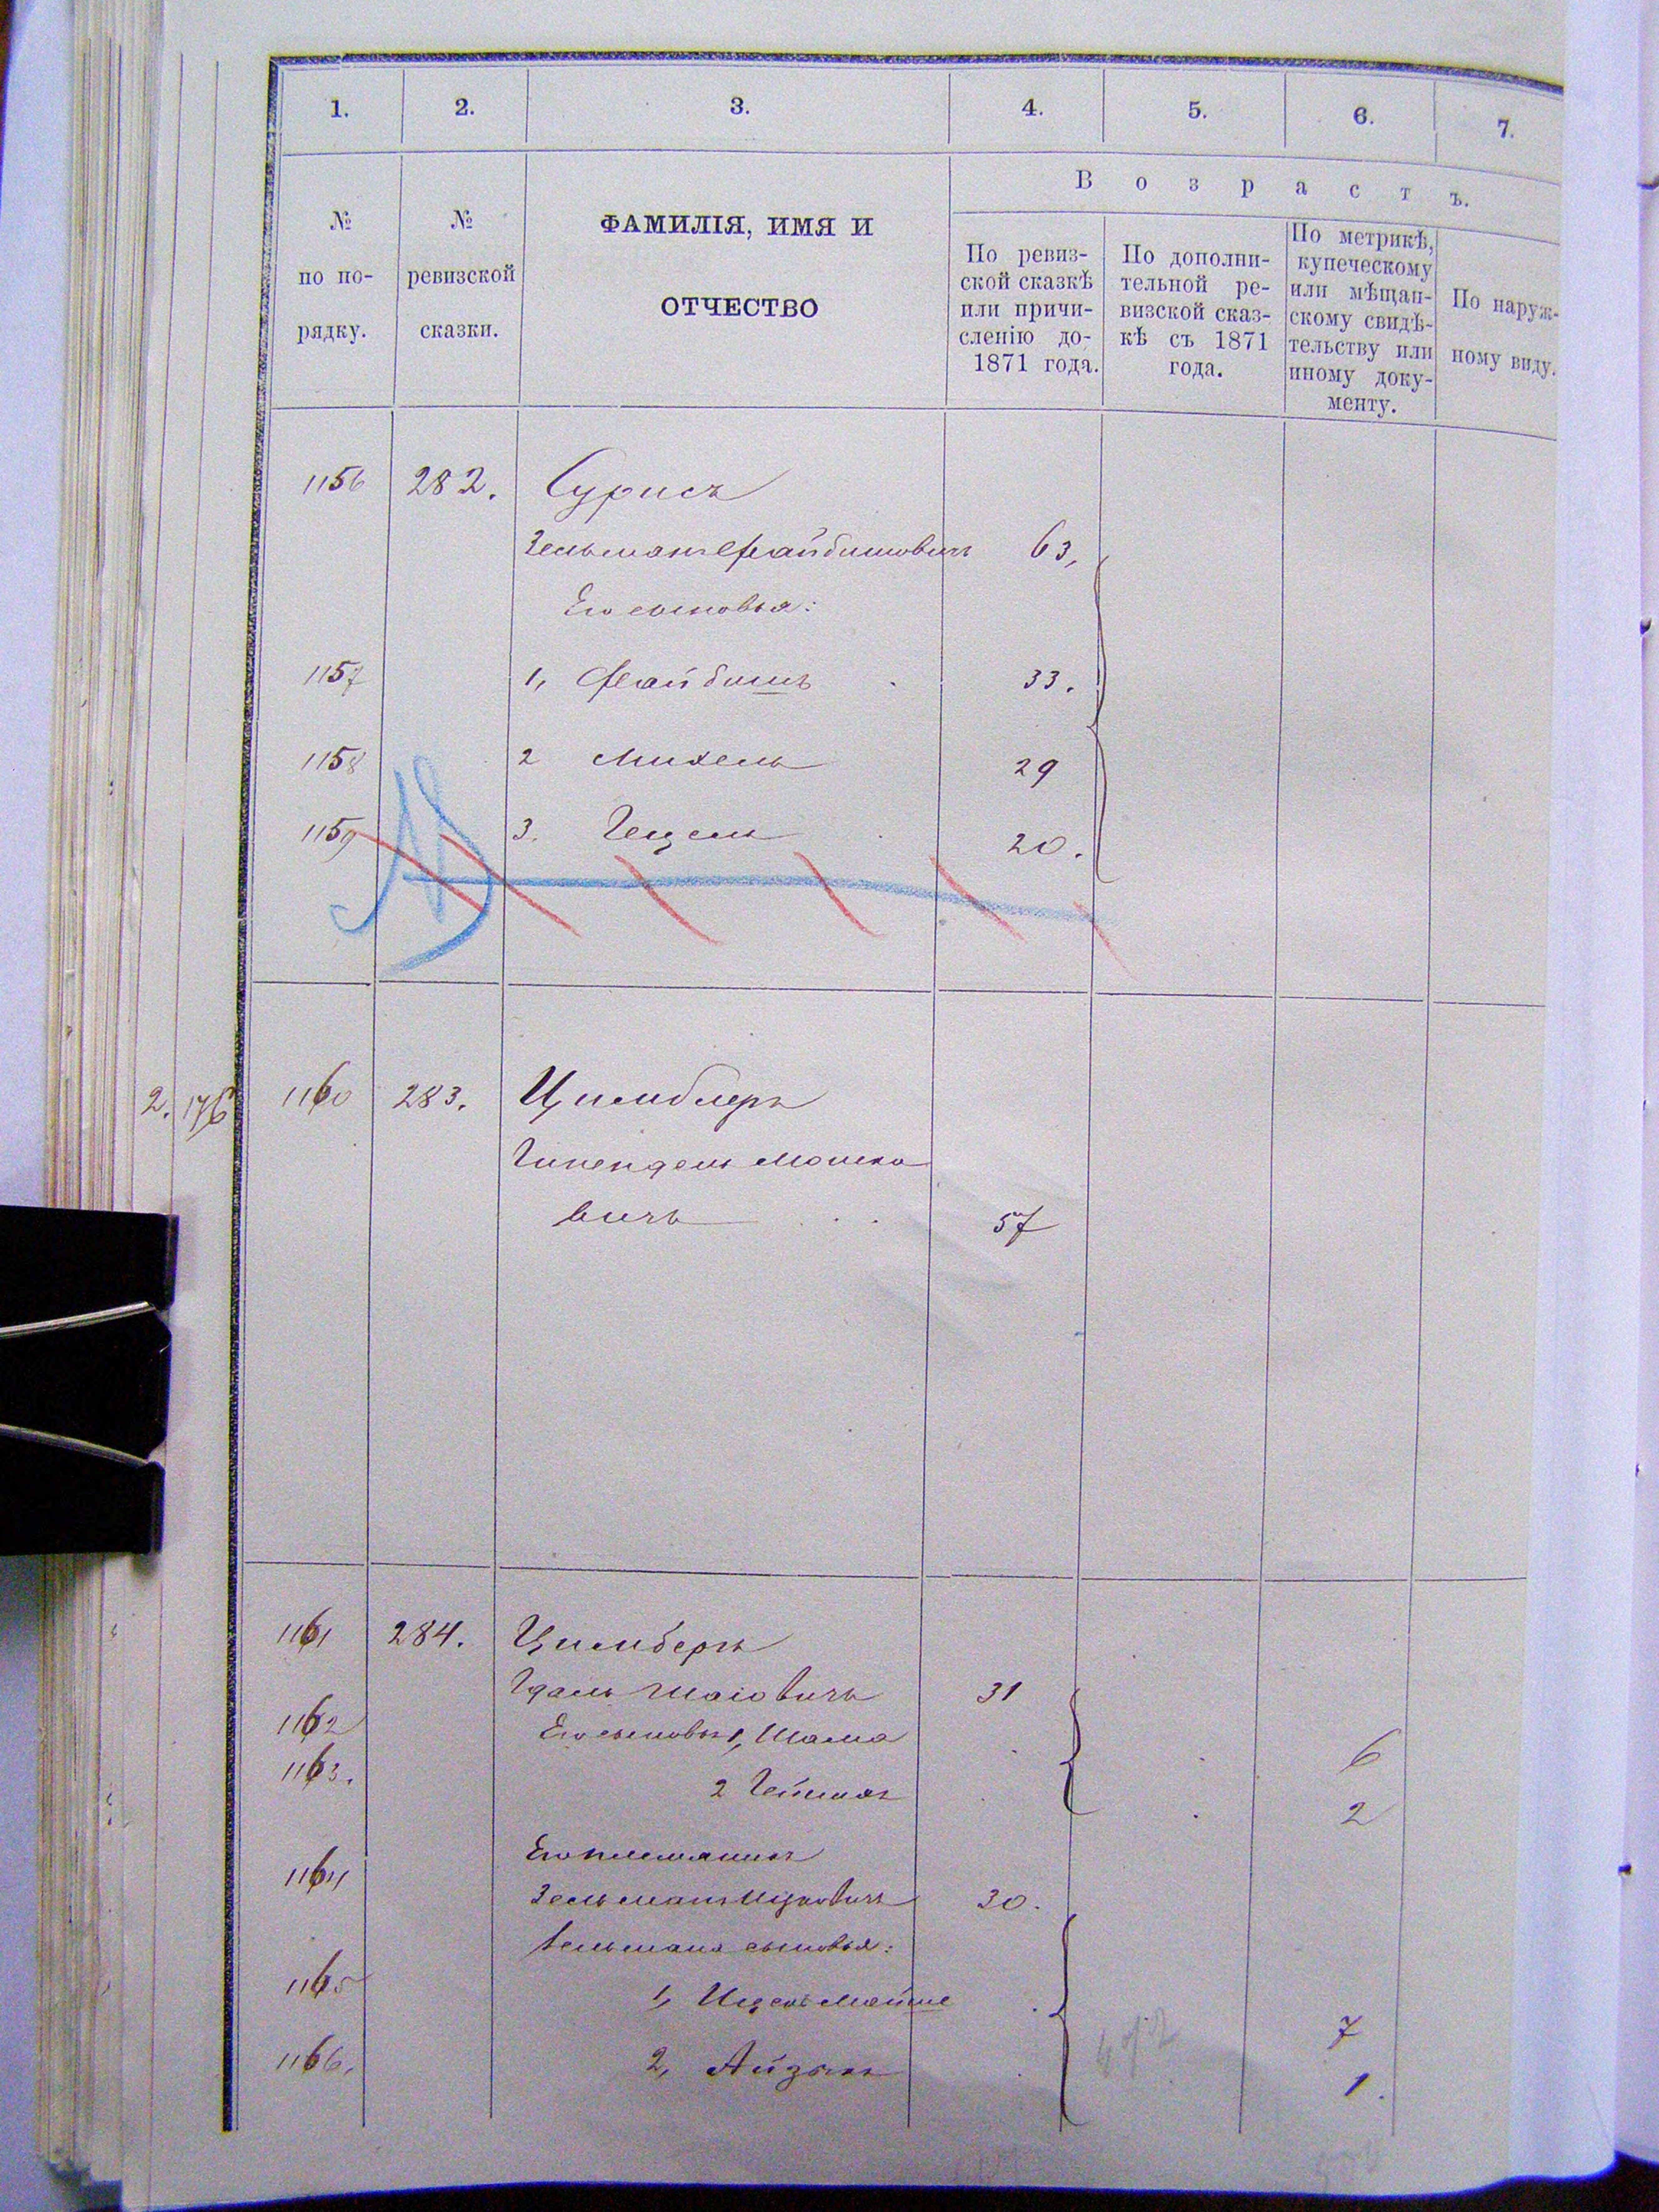 1. 2. 3. 4. 5. 6. 7.
№ по по-рядку.
№ ревизской сказки.
ФАМИЛІЯ, ИМЯ И
ОТЧЕСТВО
Возрастъ.
По ревиз-
ской сказкѣ
или причи-
сленію до-
1871 года.
По дополни-
тельной ре-
визской сказ-
кѣ съ 1871
года.
По метрикѣ,
купеческому
или мѣщан-
скому свидѣ-
тельству или
иному доку-
менту.
По наруж-
ному виду.
1156 282. Сурисъ
Зельманъ Файбишовичъ 63,
Его сыновья:
1157 1, Файбишъ 33.
1158 2 Михель 29
1159 3. Гецель 20.
2. 176 1160 283. Цимблеръ
Мошко
вичъ 57
1161 284. Цимберъ
Гдаль Шаіовичъ 31
1162 Его сыновья 1, Шама 6
1163. 2 Гейманъ 2
Его племянникъ
1164 Зельманъ Ицковичъ 30.
Зельмана сыновья:
1165 1, Ицекъ Мойше 7
1166. 2, Айзыкъ 1.